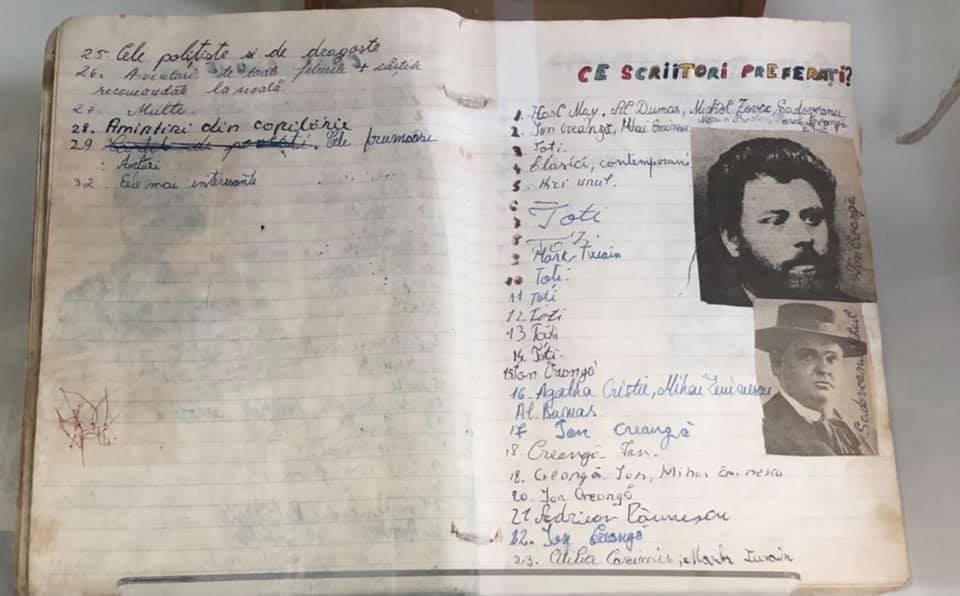 25. Cele polițiste si de dragoste
26. Aventuri de toate felurile + cărțile
recomandate la școală.
27. Multe.
28. Amintiri din copilărie
29. Cele frumoase
Anturi
32. Cele mai interesante
CE SCRIITORI PREFERAȚI?
1. Karl May, Al Dumas, Michel Zevac, Sadoveanu
2. Ion Creangă, Mihai Eminescu
3. Toti.
4 Clasici, contemporani
5. Nici unul.
6
7 Toti
8
9 Mark Twain
10 Toti.
11 Toti
12. Toti
13 Toti
14. Toti.
15 Ion Creangă
16. Agatha Cristie, Mihai Eminescu
Al. Dumas.
17 Ion Creangă
18. Creangă Ion.
18. Creangă Ion, Mihai Eminescu
20. Ion Creangă
21 Adrian Păunescu
22. Ion Creangă
23. Otilia Cazimir, Mark Twain
Ion Creangă
Sadoveanu Mihail